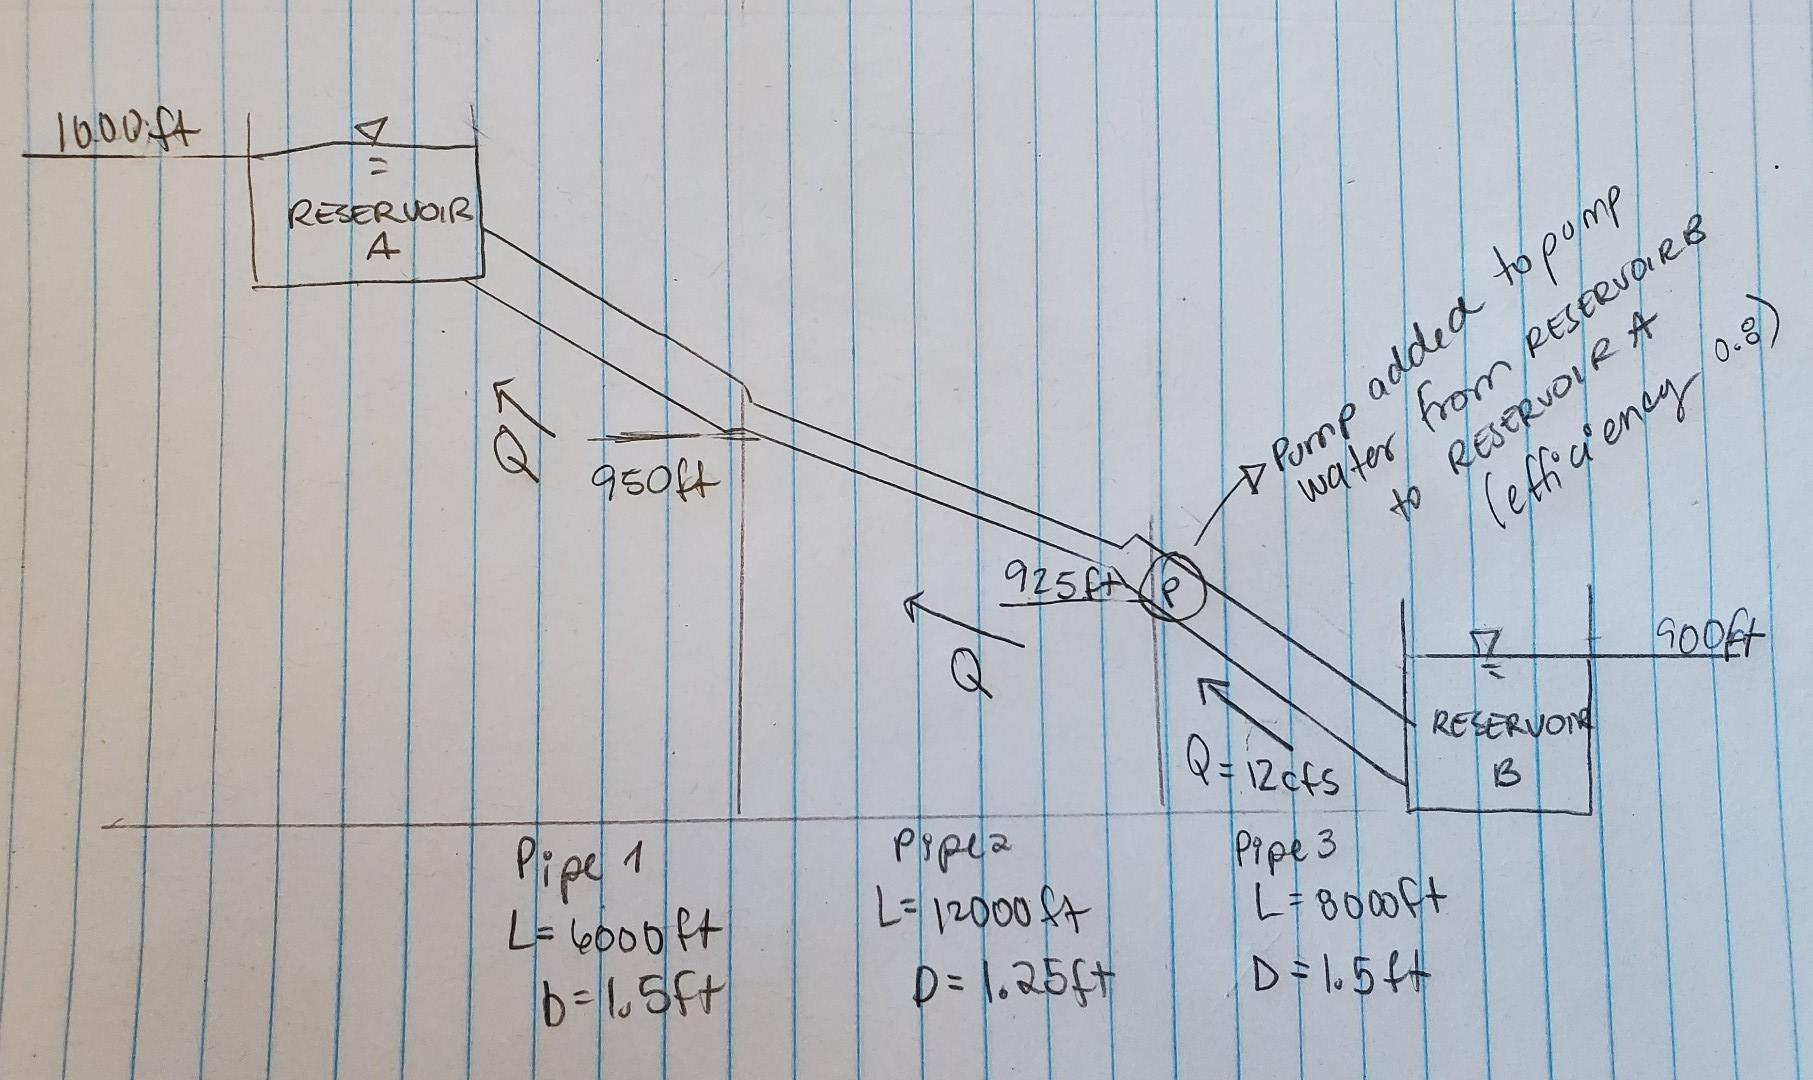 1000ft
RESERVOIR
A
Q
950ft
Pump added to pump
water from RESERVOIR B
to RESERVOIR A
(efficiency 0.8)
925ft
P
Q
900ft
RESERVOIR
B
Q = 12cfs
Pipe 1
L= 6000ft
D=1.5ft
Pipe 2
L= 12000ft
D= 1.25ft
Pipe 3
L= 8000ft
D= 1.5ft